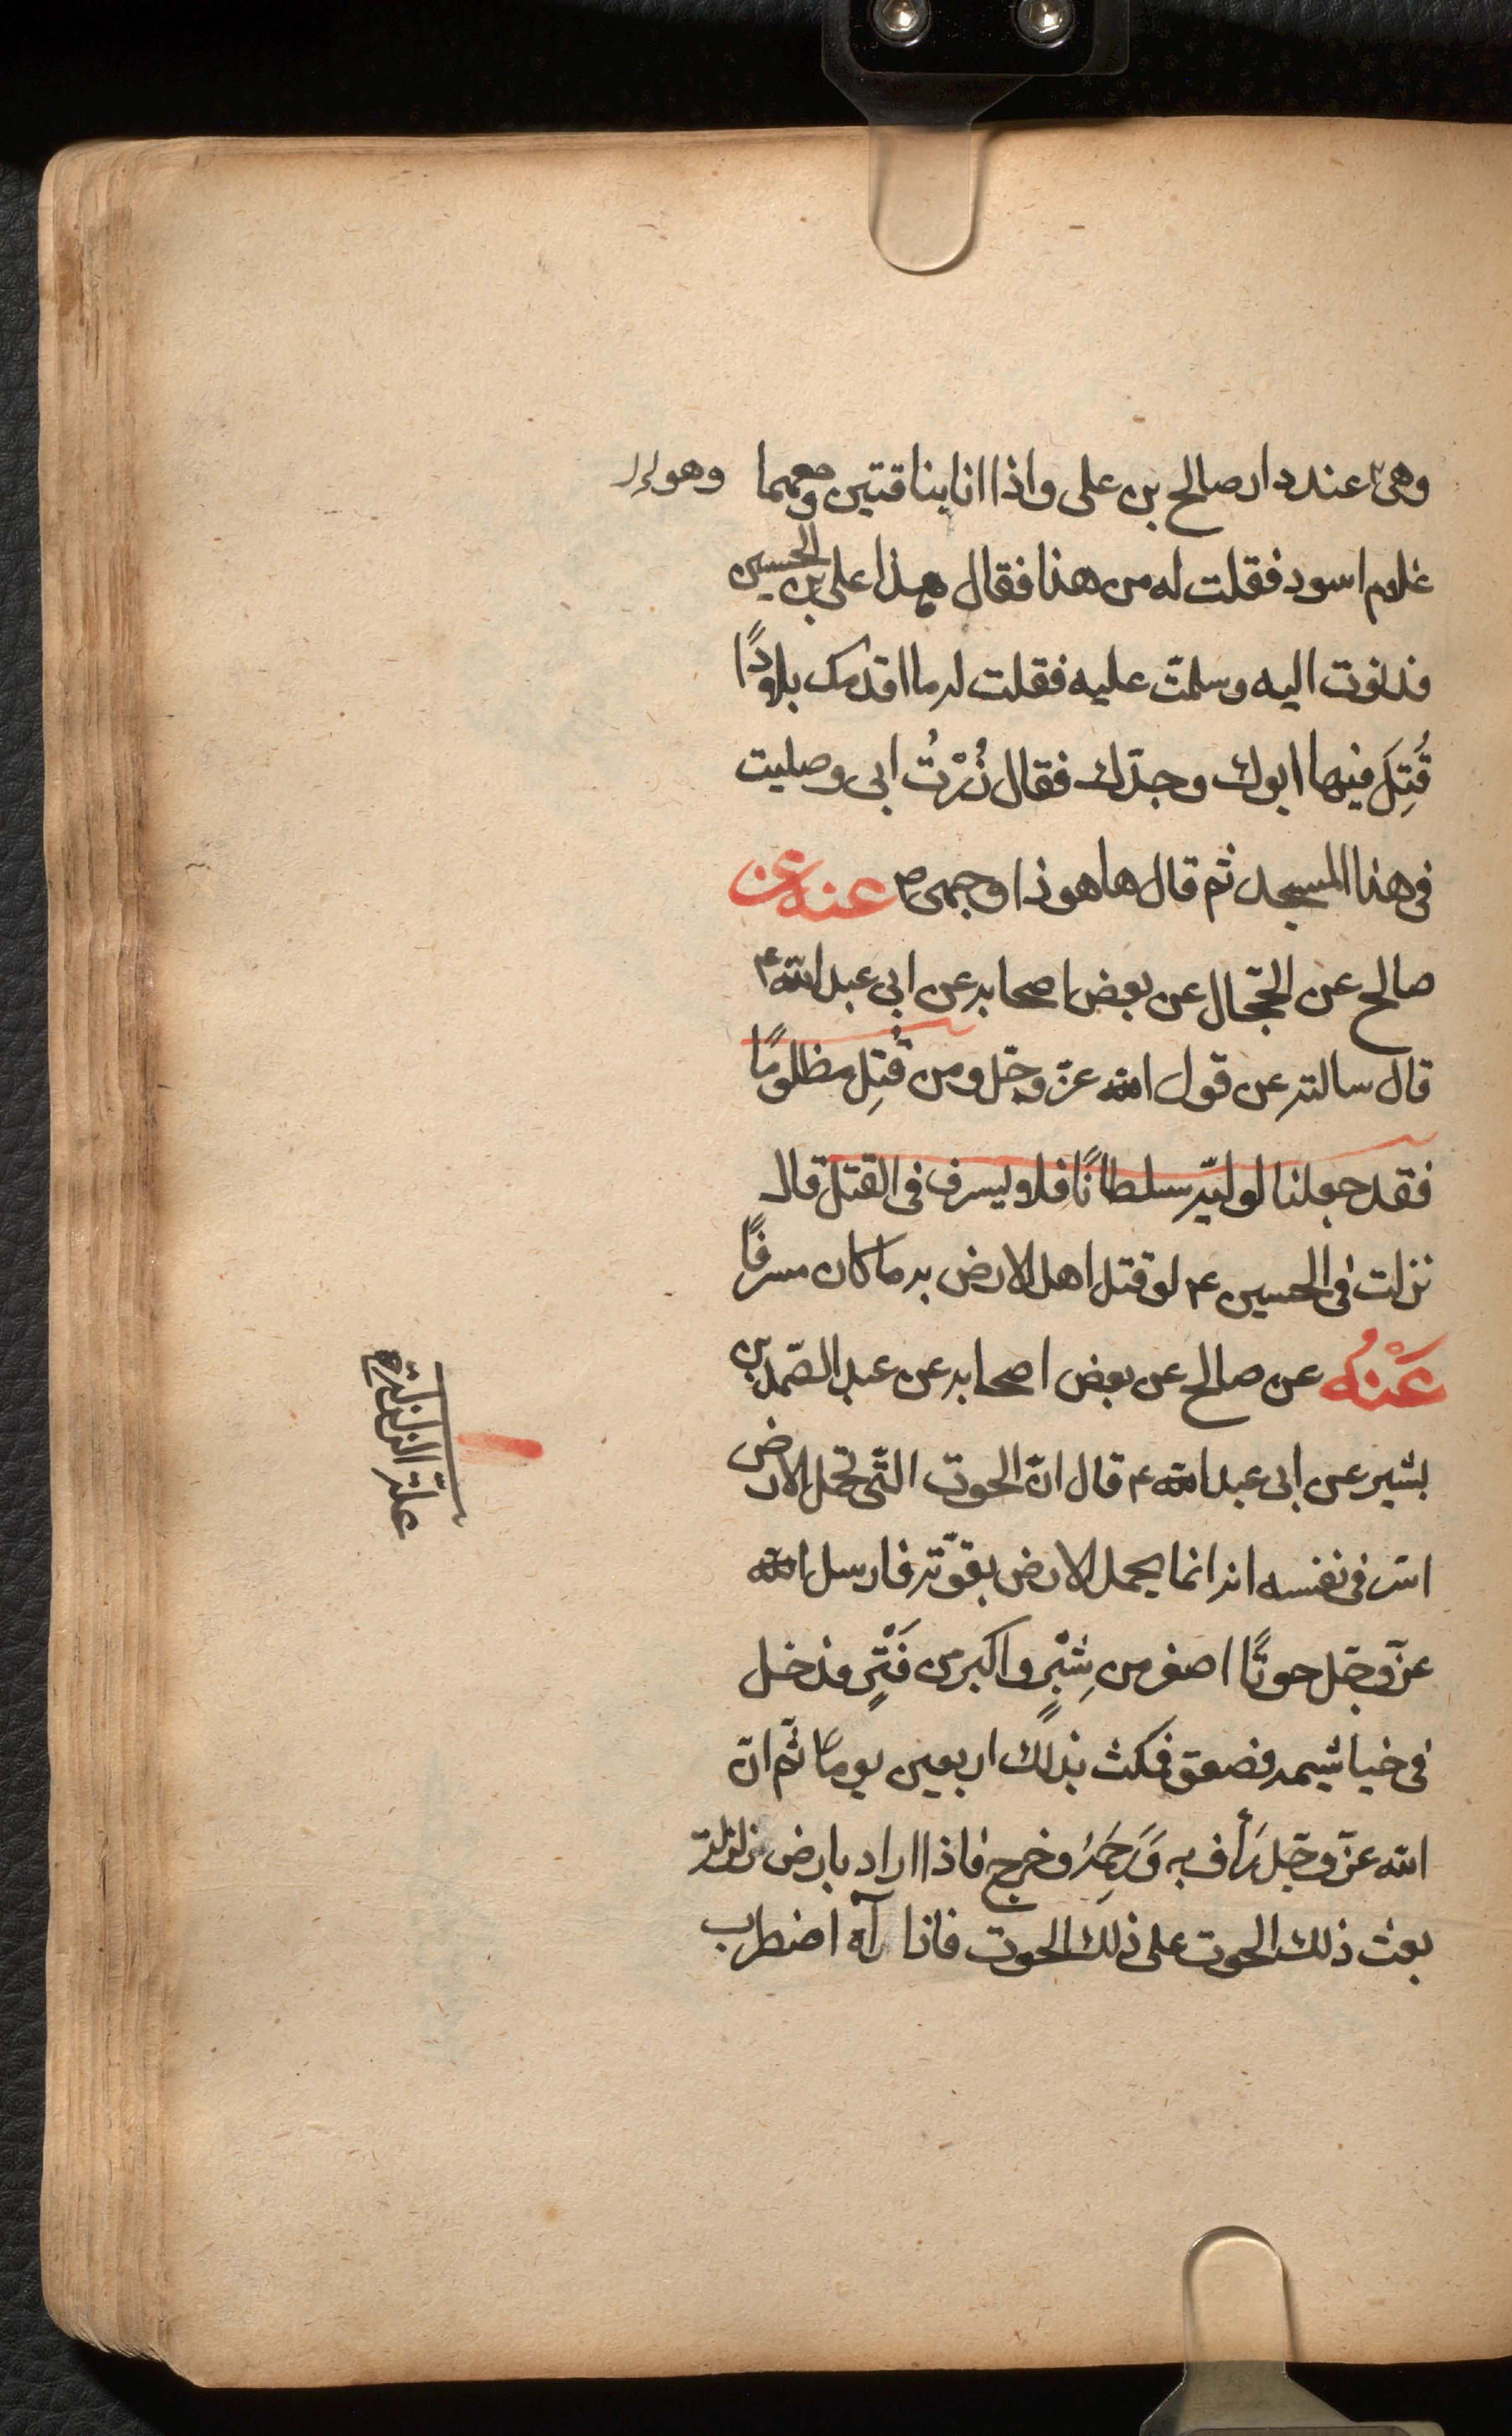 وهى عند دار صالح بن على واذا انا بناقتين ومعهما
غلام اسود فقلت له من هذا فقال هذا على بن الحسين
فدنوت اليه وسلمت عليه فقلت له ما اقدمك بلادًا
قُتِلَ فيها ابوك وجدّك فقال زُرْتُ ابى وصليت
فى هذا المسجد ثم قال ها هوذا وجهى ص عنه عن
صالح عن الحجّال عن بعض اصحابه عن ابى عبد الله ع
قال سالته عن قول الله عزّ وجّل ومن قُتِل مظلومًا
فقد جعلنا لوليّه سلطانًا فلا يسرف فى القتل قال
نزلت فى الحسين ع لو قتل اهل الارض به ما كان مسرفًا
عَنْهُ عن صالح عن بعض اصحابه عن عبد الصّمد بن
بشير عن ابى عبد الله ع قال انّ الحوت الّتى تحمل الارض
اسّر فى نفسه انه انما يحمل الارض بقوّته فارسل الله
عزّ وجّل حوتًا اصغر من شِبْرٍ واكبر من فَتْرٍ فدخل
فى خياشيمه فصعق فمكث بذلك اربعين يومًا ثّم انّ
الله عزّ وجّل رَأف به وَرَحِمَهُ وخرج فاذا اراد بارض زلزلة
بعث ذلك الحوت على ذلك الحوت فاذا رآه اضطرب
علة الزلزلة